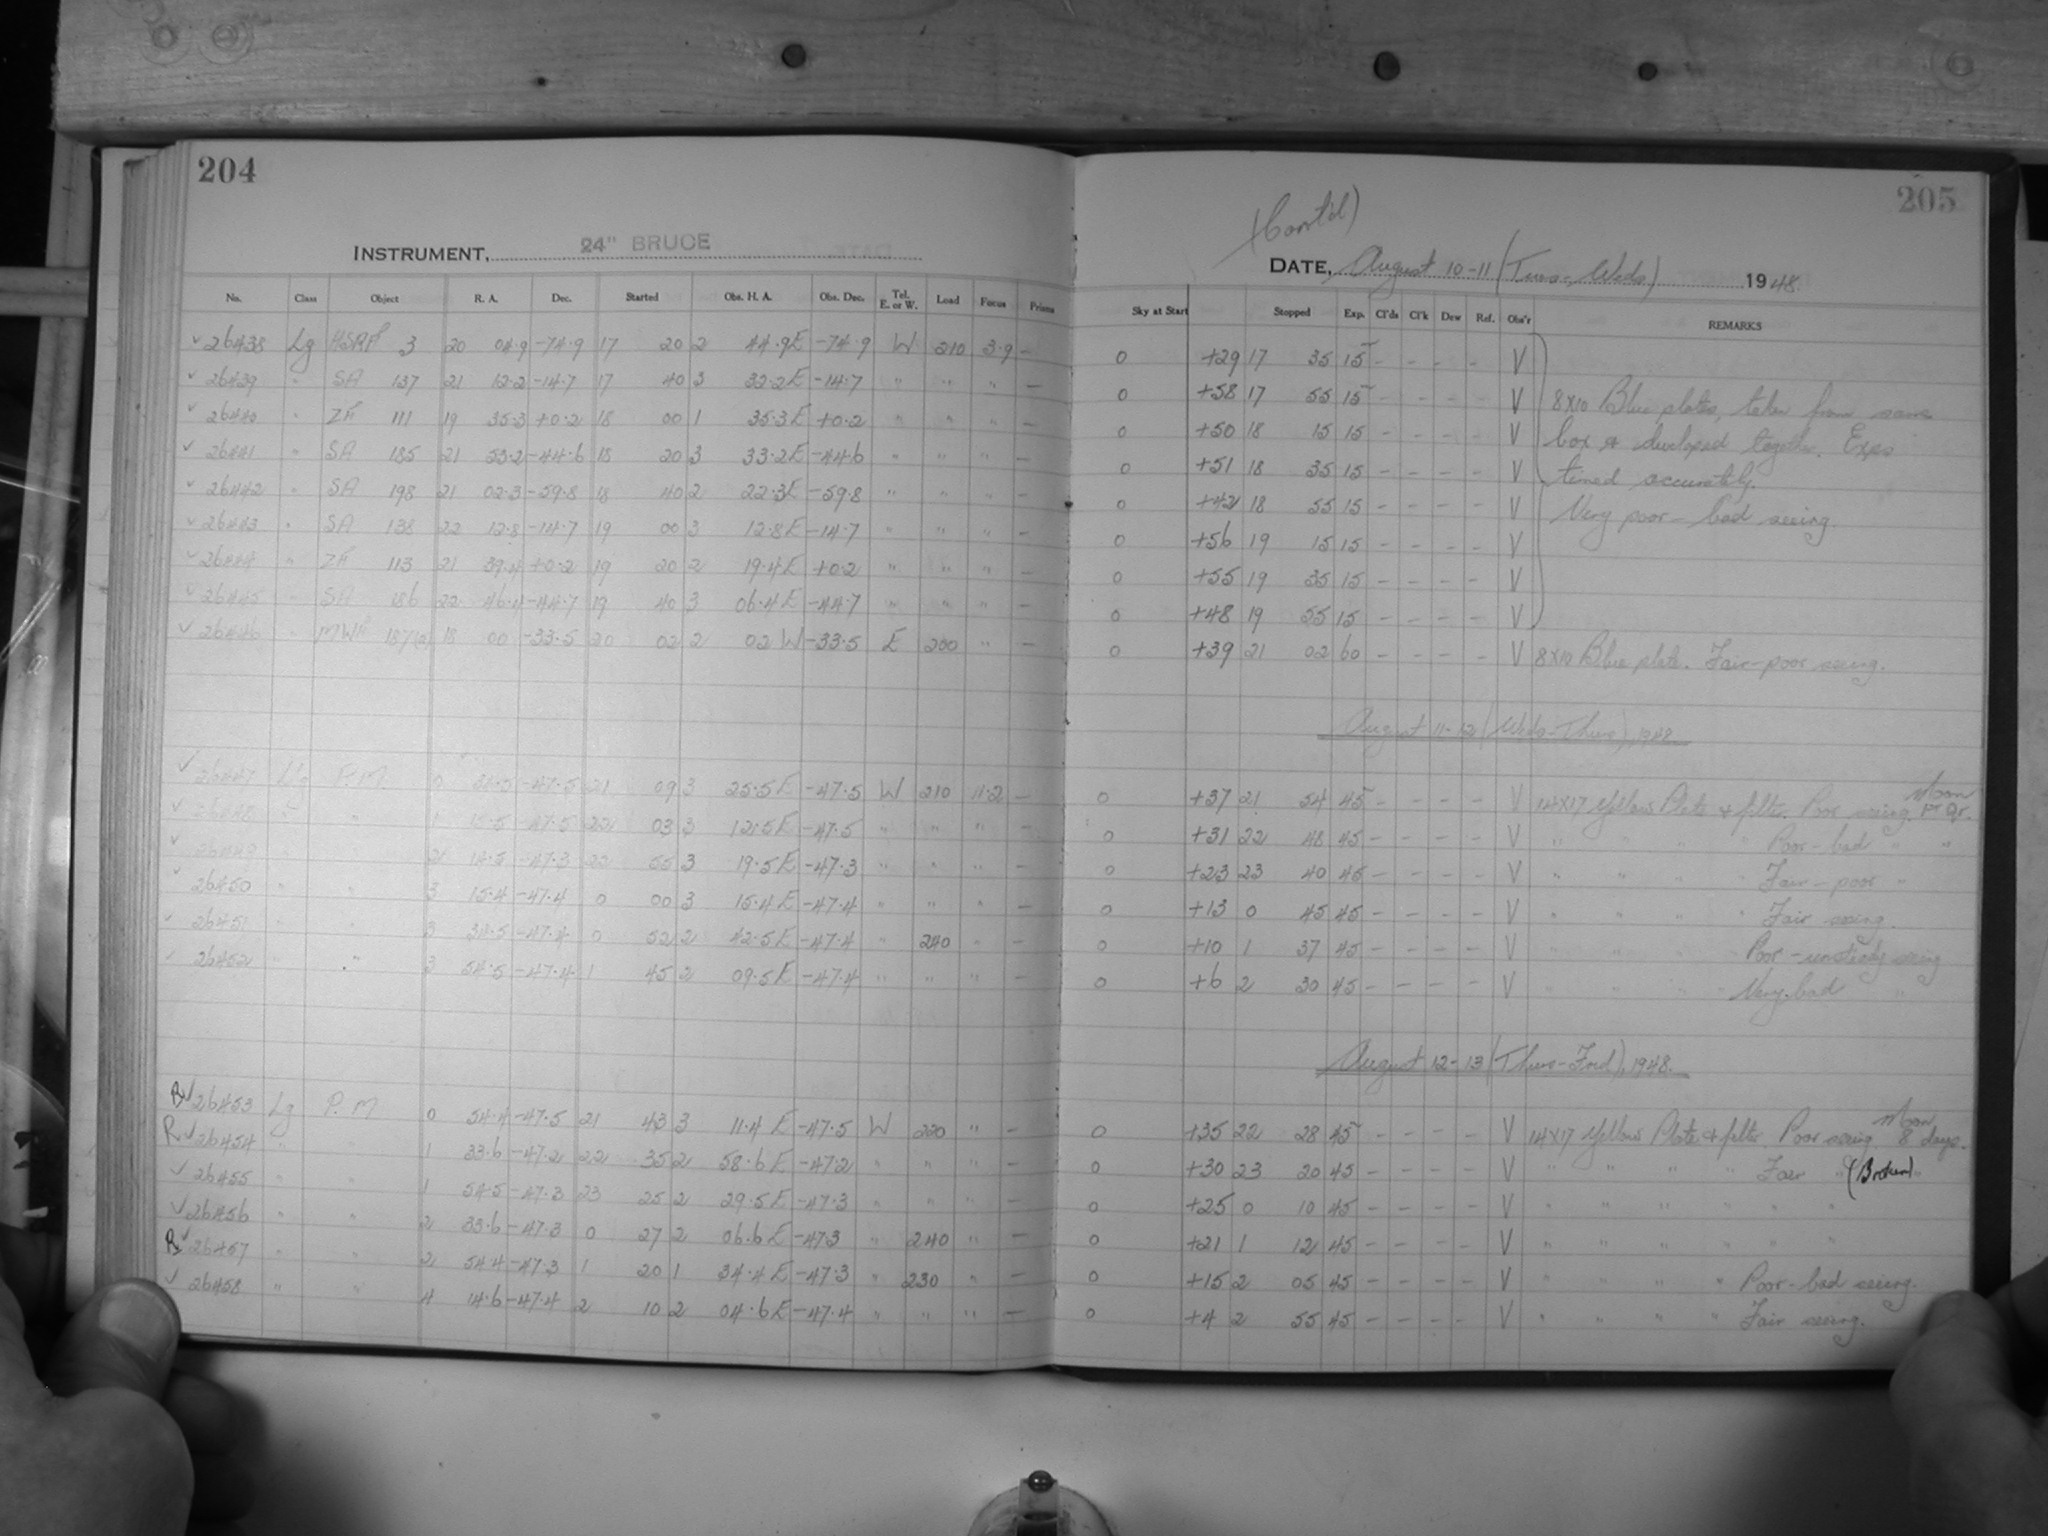 204
INSTRUMENT, 24" BRUCE
No. Class Object R. A. Dec. Started Obs. H. A. Obs. Dec. Tel. E. or W. Load Focus Prisms
26438 Lg 3 20 04.9 -74.9 17 20 2 44.9E -74.9 W 210 3.9 -
26439 " SA 137 21 12.2 -14.7 17 40 3 32.2E -14.7 " " " -
26440 " 111 19 35.3 +0.2 18 00 1 35.3E +0.2 " " " -
26441 " SA 185 21 53.2 -44.6 18 20 3 33.2E -44.6 " " " -
26442 " SA 198 21 02.3 -59.8 18 40 2 22.3E -59.8 " " " -
26443 " SA 138 22 12.8 -14.7 19 00 3 12.8E -14.7 " " " -
26444 " 113 21 39.4 +0.2 19 20 2 19.4E +0.2 " " " -
26445 " SA 186 22 46.4 -44.7 19 40 3 06.4E -44.7 " " " -
26446 " MWF 187 18 00 -33.5 20 02 2 02 W -33.5 E 200 " -
26447 Lg P.M. 0 -47.5 21 09 3 25.5E -47.5 W 210 11.2 -
26448 " " 1 15.5 -47.5 22 03 3 12.5E -47.5 " " " -
26449 " " 2 14.5 -47.3 22 55 3 19.5E -47.3 " " " -
26450 " " 3 15.4 -47.4 0 00 3 15.4E -47.4 " " " -
26451 " " 3 34.5 -47.4 0 52 2 42.5E -47.4 " 240 " -
26452 " " 3 54.5 -47.4 1 45 2 09.5E -47.4 " " " -
R 26453 Lg P.M 0 54.4 -47.5 21 43 3 11.4 E -47.5 W 220 " -
R 26454 " " 1 33.6 -47.2 22 35 2 58.6E -47.2 " " " -
26455 " " 1 54.5 -47.3 23 25 2 29.5E -47.3 " " " -
26456 " " 2 33.6 -47.3 0 27 2 06.6E -47.3 " 240 " -
R 26457 " " 2 54.4 -47.3 1 20 1 34.4E -47.3 " 230 " -
26458 " " 4 14.6 -47.4 2 10 2 04.6E -47.4 " " " -
205
(Cont'd)
DATE, August 10-11 (Tues-Weds) 1948.
Sky at Start Stopped Exp. Cl'ds Cl'k Dew Ref. Obs'r REMARKS
0 +29 17 35 15 - - - - V
0 +58 17 55 15 - - - - V 8X10 Blue plates, taken from same
0 +50 18 15 15 - - - - V box & developed together. Exps
0 +51 18 35 15 - - - - V timed accurately.
0 +42 18 55 15 - - - - V Very poor-bad seeing.
0 +56 19 15 15 - - - - V
0 +55 19 35 15 - - - - V
0 +48 19 55 15 - - - - V
0 +39 21 02 60 - - - - V 8X10 Blue plate. Fair-poor seeing.
August 11-12 (Weds-Thurs), 1948.
0 +37 21 54 45 - - - - V 14X17 Yellow Plate & filter. Poor seeing. Moon 1st Qr.
0 +31 22 48 45 - - - - V " " " " Poor-bad " "
0 +23 23 40 45 - - - - V " " " " Fair-poor "
0 +13 0 45 45 - - - - V " " " " Fair seeing.
0 +10 1 37 45 - - - - V " " " " Poor-unsteady seeing
0 +6 2 30 45 - - - - V " " " " Very bad "
August 12-13 (Thurs-Frid), 1948.
0 +35 22 28 45 - - - - V 14X17 Yellow Plate & filter. Poor seeing. Moon 8 days.
0 +30 23 20 45 - - - - V " " " " Fair " (Broken) "
0 +25 0 10 45 - - - - V " " " " " "
0 +21 1 12 45 - - - - V " " " " " "
0 +15 2 05 45 - - - - V " " " " Poor-bad seeing.
0 +4 2 55 45 - - - - V " " " " Fair seeing.